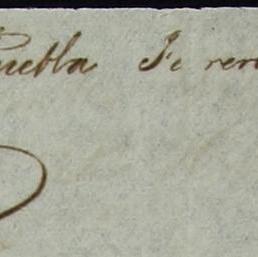 Puebla Se rem